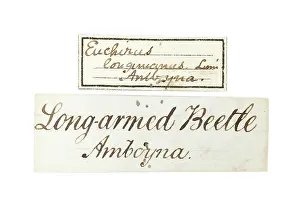 Euchirus
longimanus Linn.
Amboyna.
Long-armed Beetle
Amboyna.